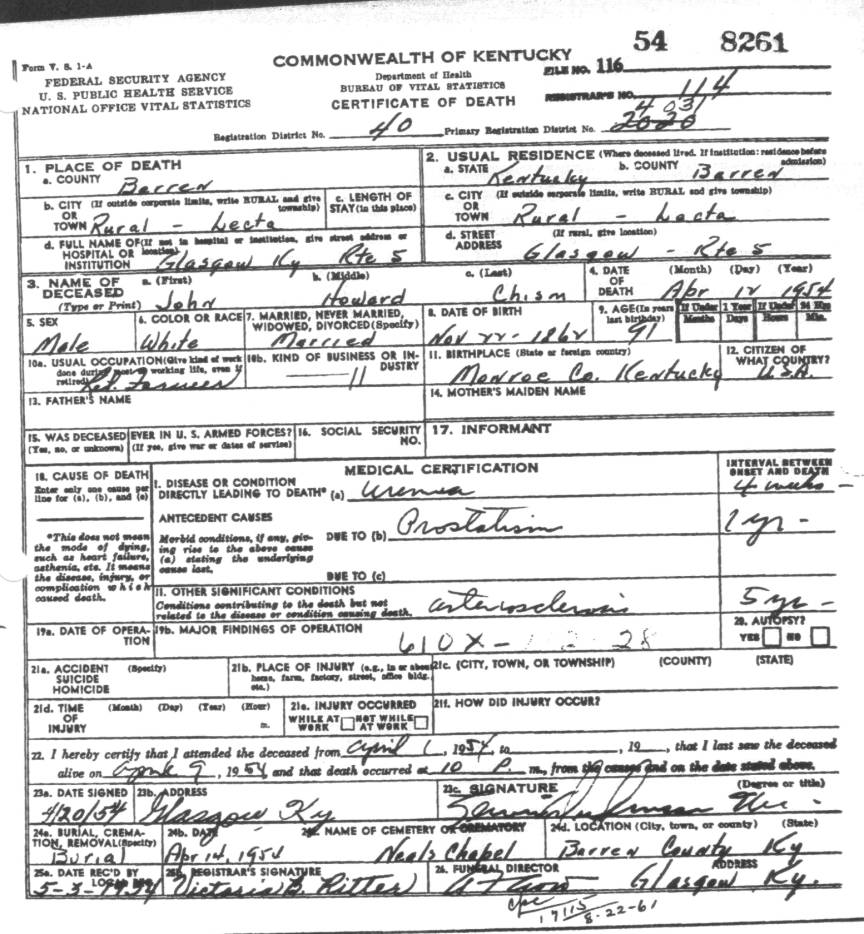 54 8261
Form V. S. 1-A
COMMONWEALTH OF KENTUCKY
FILE NO. 116
FEDERAL SECURITY AGENCY
U. S. PUBLIC HEALTH SERVICE
NATIONAL OFFICE VITAL STATISTICS
Department of Health
BUREAU OF VITAL STATISTICS
CERTIFICATE OF DEATH
REGISTRAR'S NO. 114
403
Registration District No. 40 Primary Registration District No. 2020
1. PLACE OF DEATH
a. COUNTY Barren
2. USUAL RESIDENCE (Where deceased lived. If institution: residence before admission)
a. STATE Kentucky b. COUNTY Barren
b. CITY (If outside corporate limits, write RURAL and give township)
OR
TOWN Rural - Lecta
c. LENGTH OF STAY (in this place)
c. CITY (If outside corporate limits, write RURAL and give township)
OR
TOWN Rural - Lecta
d. FULL NAME OF (If not in hospital or institution, give street address or location)
HOSPITAL OR
INSTITUTION Glasgow Ky Rte 5
d. STREET (If rural, give location)
ADDRESS Glasgow - Rte 5
3. NAME OF DECEASED
(Type or Print)
a. (First) John
b. (Middle) Howard
c. (Last) Chism
4. DATE OF DEATH (Month) (Day) (Year)
Apr 12 1954
5. SEX
Male
6. COLOR OR RACE
White
7. MARRIED, NEVER MARRIED, WIDOWED, DIVORCED (Specify)
Married
8. DATE OF BIRTH
Nov 22-1862
9. AGE (In years last birthday)
91
If Under 1 Year
Months Days
If Under 24 Hrs
Hours Min.
10a. USUAL OCCUPATION (Give kind of work done during most of working life, even if retired)
Ret. Farmer
10b. KIND OF BUSINESS OR INDUSTRY
11
11. BIRTHPLACE (State or foreign country)
Monroe Co. Kentucky
12. CITIZEN OF WHAT COUNTRY?
U.S.A.
13. FATHER'S NAME
14. MOTHER'S MAIDEN NAME
15. WAS DECEASED EVER IN U. S. ARMED FORCES?
(Yes, no, or unknown) (If yes, give war or dates of service)
16. SOCIAL SECURITY NO.
17. INFORMANT
18. CAUSE OF DEATH
Enter only one cause per line for (a), (b), and (c)
*This does not mean the mode of dying, such as heart failure, asthenia, etc. It means the disease, injury, or complication which caused death.
MEDICAL CERTIFICATION
INTERVAL BETWEEN ONSET AND DEATH
I. DISEASE OR CONDITION
DIRECTLY LEADING TO DEATH* (a) Uremia 4 weeks -
ANTECEDENT CAUSES
Morbid conditions, if any, giving rise to the above cause (a) stating the underlying cause last.
DUE TO (b) Prostatism 1 yr -
DUE TO (c)
II. OTHER SIGNIFICANT CONDITIONS
Conditions contributing to the death but not related to the disease or condition causing death.
Arteriosclerosis 5 yr -
19a. DATE OF OPERATION
19b. MAJOR FINDINGS OF OPERATION
610X- 28
20. AUTOPSY?
YES NO
21a. ACCIDENT (Specify)
SUICIDE
HOMICIDE
21b. PLACE OF INJURY (e.g., in or about home, farm, factory, street, office bldg. etc.)
21c. (CITY, TOWN, OR TOWNSHIP) (COUNTY) (STATE)
21d. TIME OF INJURY (Month) (Day) (Year) (Hour)
m.
21e. INJURY OCCURRED
WHILE AT WORK NOT WHILE AT WORK
21f. HOW DID INJURY OCCUR?
22. I hereby certify that I attended the deceased from April 1, 1954 to , 19 , that I last saw the deceased
alive on April 9, 1954 and that death occurred at 10 P. m., from the causes and on the date stated above.
23a. DATE SIGNED
4/20/54
23b. ADDRESS
Glasgow Ky
23c. SIGNATURE
(Degree or title)
24a. BURIAL, CREMATION, REMOVAL (Specify)
Burial
24b. DATE
Apr 14, 1954
24c. NAME OF CEMETERY OR CREMATORY
Neals Chapel
24d. LOCATION (City, town, or county) (State)
Barren County Ky
25a. DATE REC'D BY LOCAL REG.
5-3-1954
25b. REGISTRAR'S SIGNATURE
Victoria B. Ritter
26. FUNERAL DIRECTOR
ADDRESS
Glasgow Ky.
17115
8-22-61